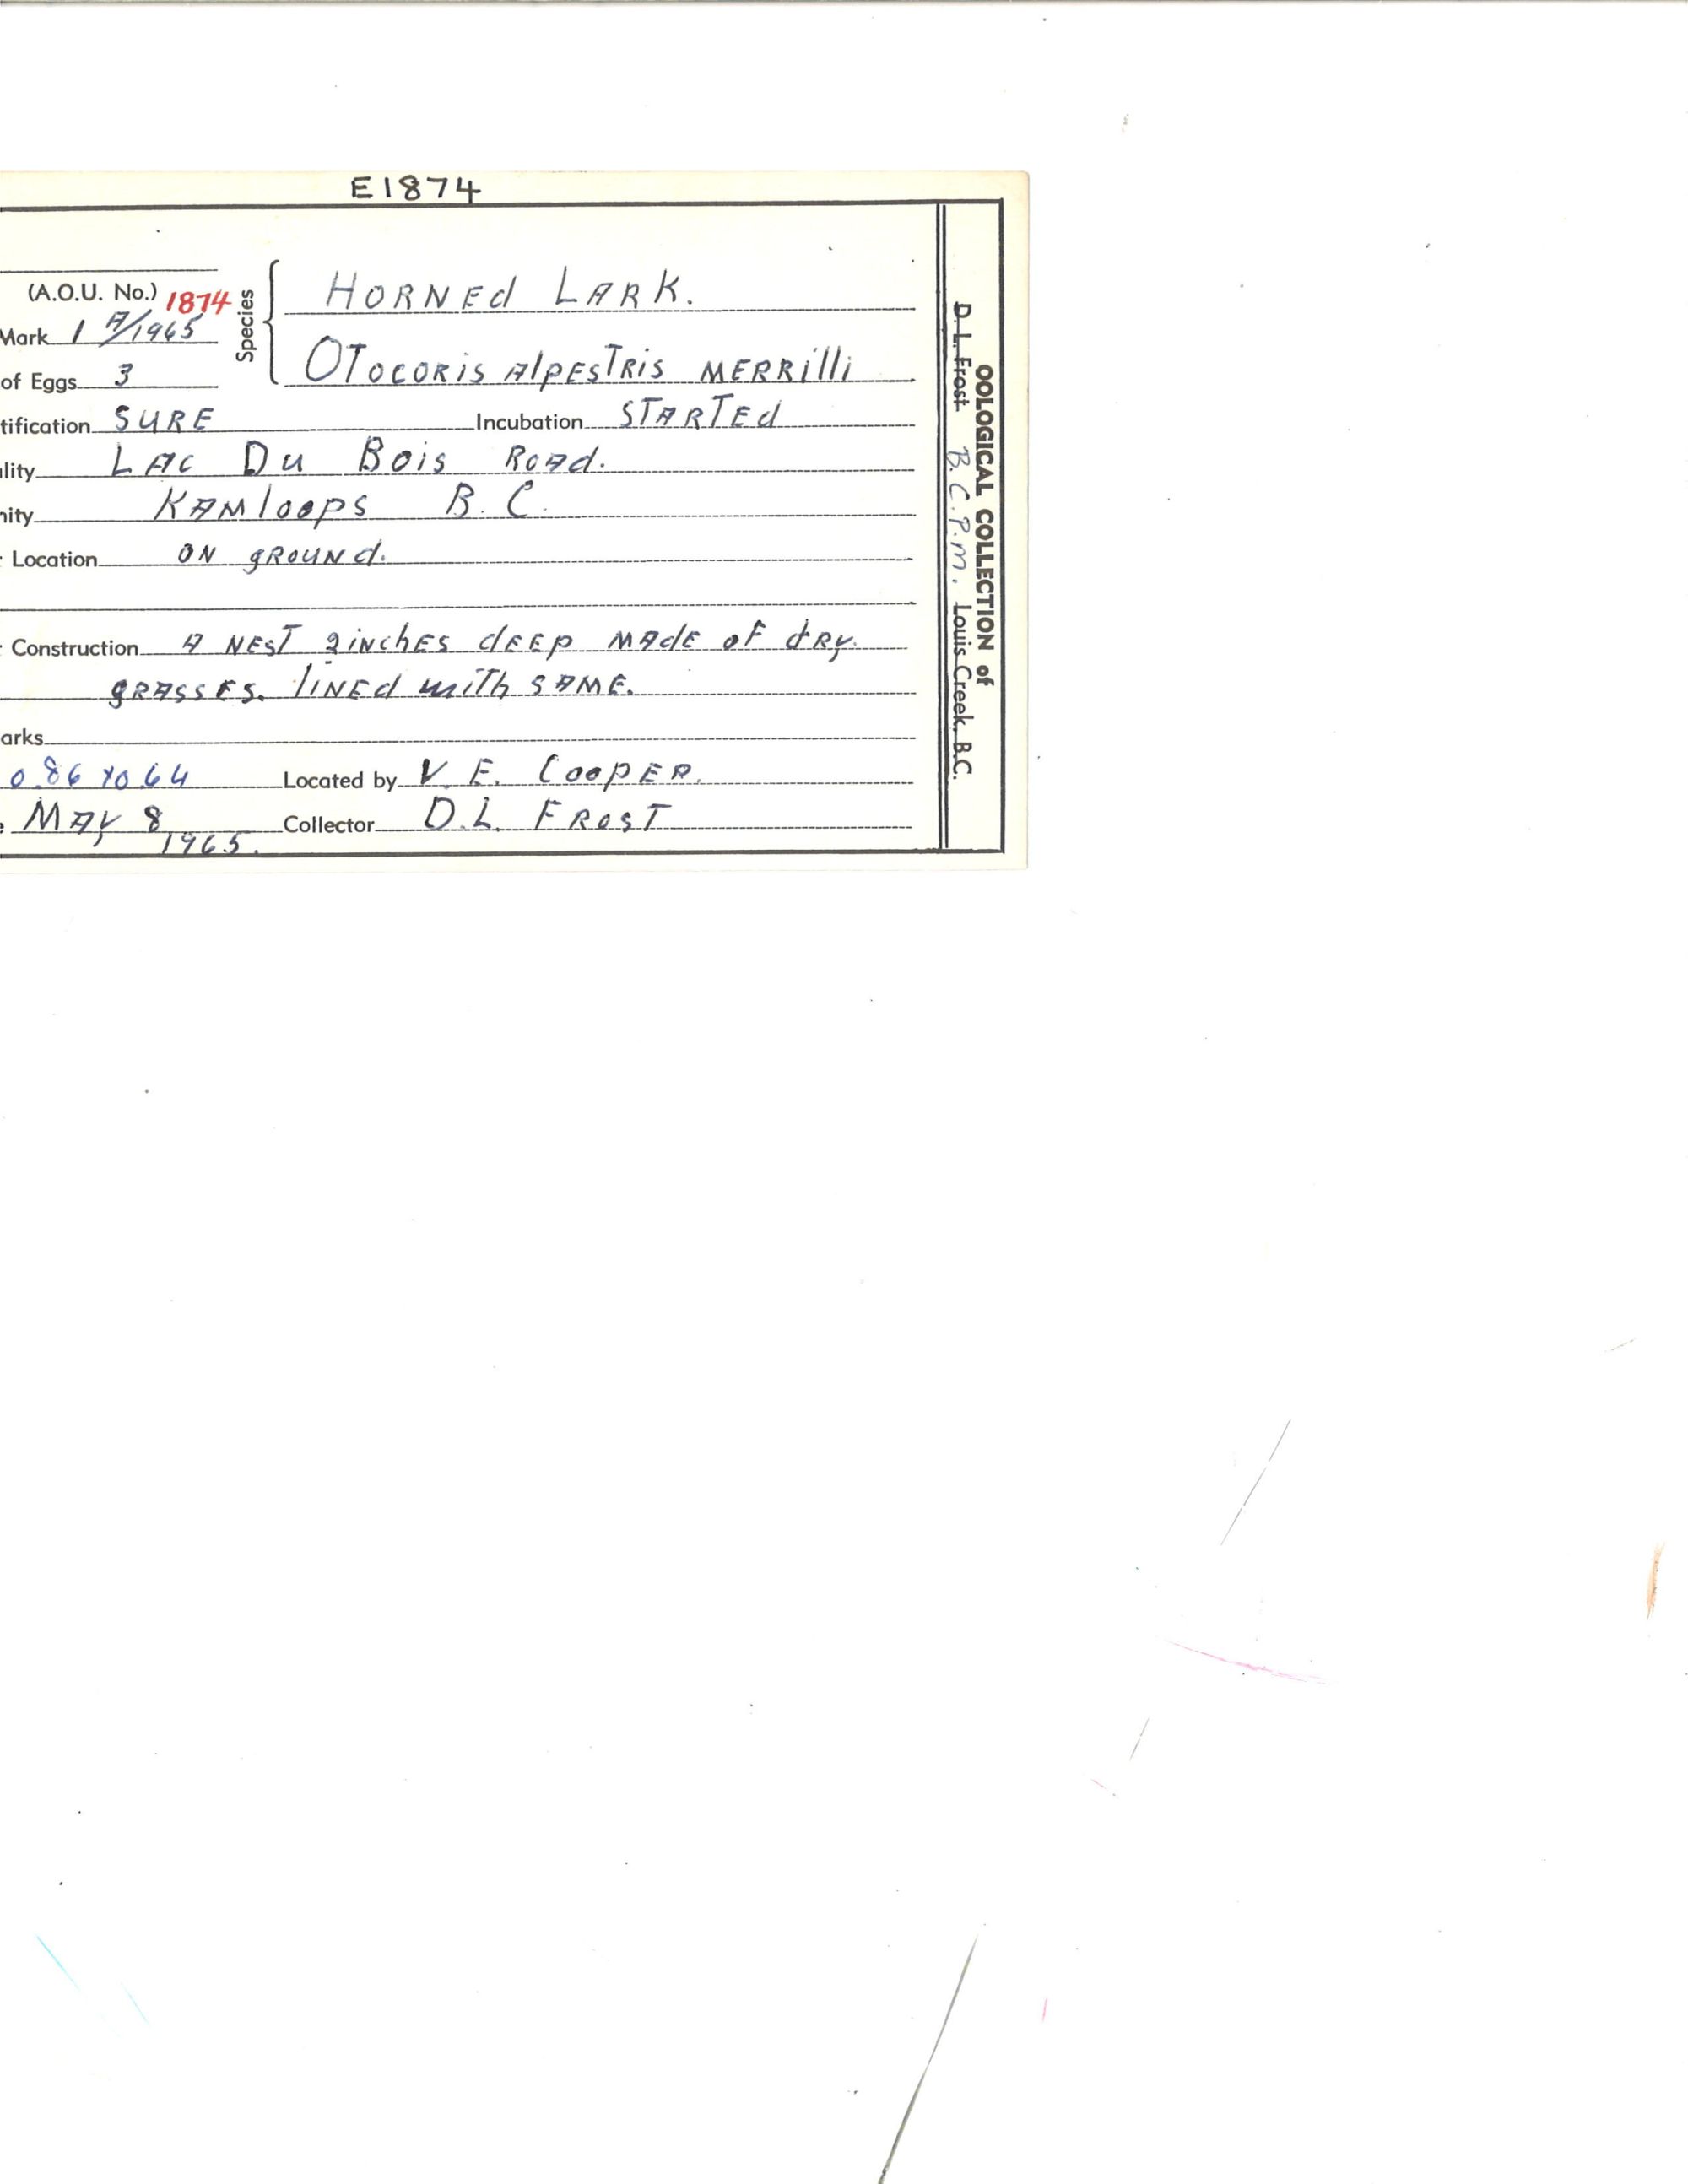 E1874
(A.O.U. No.) 1874
Species
HORNEd LARK.
Mark 1 A/1965
OTOCORIS AlpESTRIS MERRilli
of Eggs 3
tification SURE Incubation STARTEd
lity LAC Du Bois ROAd.
nity KAMloops B.C.
Location ON gROUNd.
Construction A NEST 2inchES dEEp MAdE OF dRy.
gRASSES. liNEd wiTh SAME.
arks
0.86 x 0.64 Located by V. E. COOpER.
MAy 8 1965. Collector D.L. FROST
OOLOGICAL COLLECTION of
D. L. Frost B.C.P.M. Louis Creek, B.C.